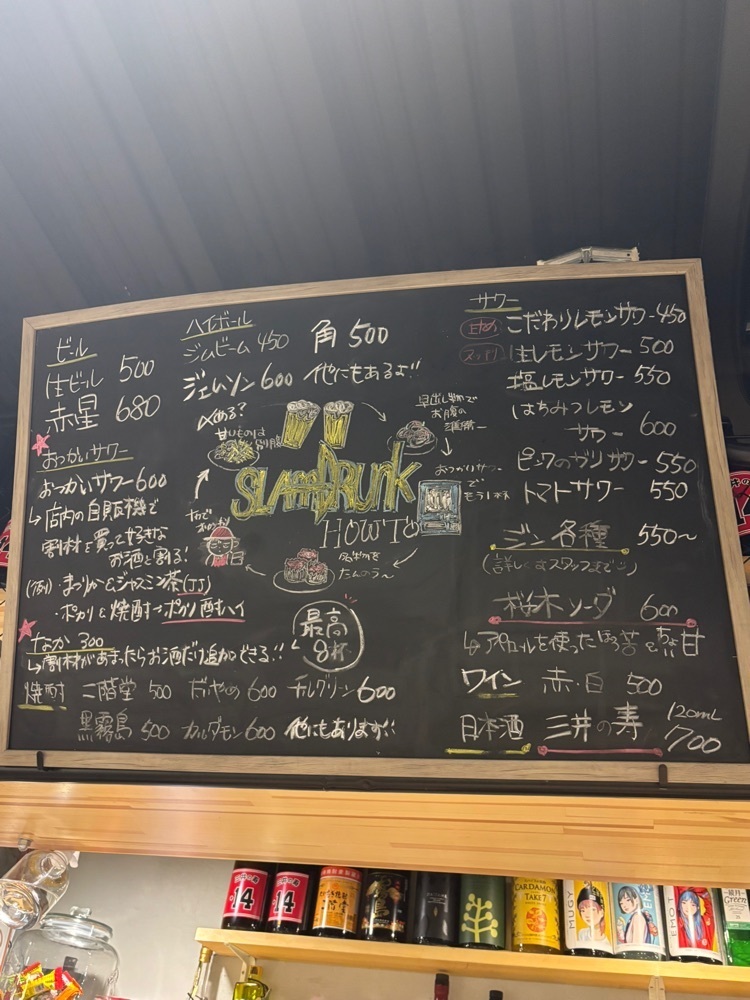 ビール
生ビール 500
赤星 680
おつかいサワー
おつかいサワー 600
↳ 店内の自販機で
割材を買って好きな
お酒と割る!
(例)・まっかーんジャスミン茶(JJ)
・ポカリ&焼酎→ポカリ酎ハイ
なか 300
↳ 割材があまったらお酒だけ追加できる!!
焼酎 二階堂 500 だいやめ 600 チルグリーン 600
黒霧島 500 カルダモン 600 他にもあります!!
ハイボール
ジムビーム 450 角 500
ジェムソン 600 他にもあるよ!!
〆める?
甘いものは
別腹
早出し物で
お腹の
準備ー
おつかいサワー
で
もう1杯
SLAMDRUNK
HOW TO
名物を
たんのう〜
最高
8杯
サワー
甘め こだわりレモンサワー 450
スッキリ 生レモンサワー 500
塩レモンサワー 550
はちみつレモン
サワー 600
ピンクのガリサワー 550
トマトサワー 550
ジン各種 550〜
(詳しくはスタッフまで
桜木ソーダ 600
↳ アペロールを使ったほろ苦&ちょい甘
ワイン 赤・白 500
日本酒 三井の寿 120mL
700
14
14
CARDAMON
TAKE7
MUGI
Green